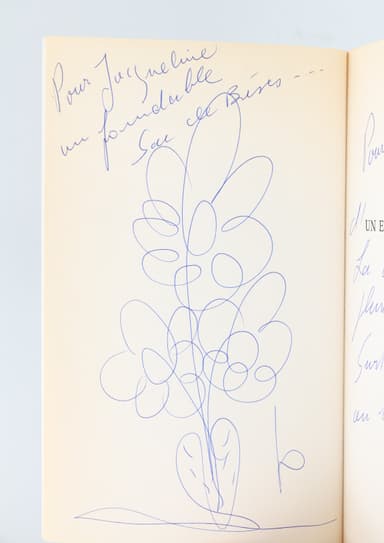 Pour Jacqueline
un formidable
Sac de Bises ---
Pour
d'
UN E
La
plur
Sur
au